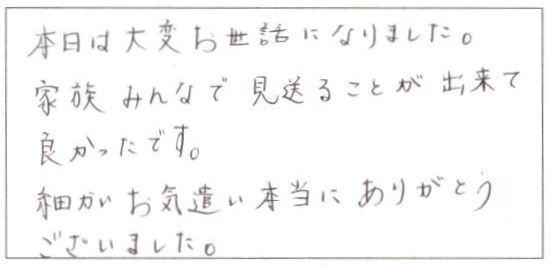 本日は大変お世話になりました。
家族みんなで見送ることが出来て
良かったです。
細かいお気遣い本当にありがとう
ございました。